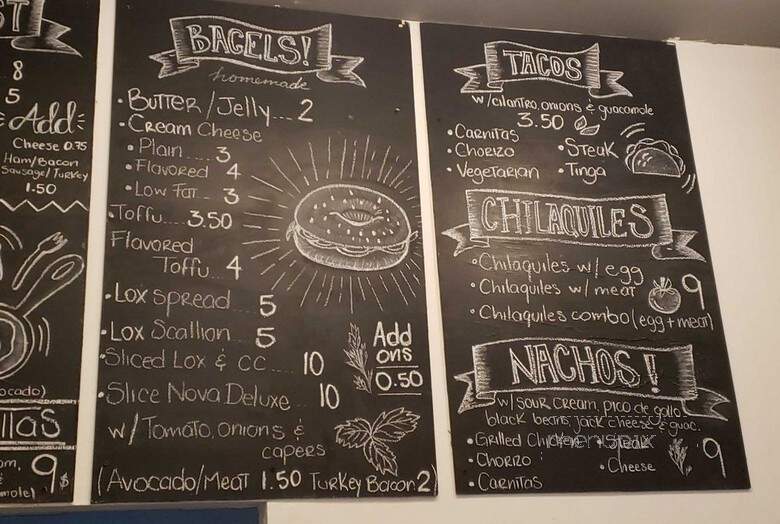 ST
8
5
Add
Cheese 0.75
Ham/Bacon
Sausage/Turkey
1.50
ocado)
llas
9$
mole)
BAGELS!
homemade
• Butter/Jelly... 2
• Cream Cheese
• Plain.... 3
• Flavored 4
• Low Fat... 3
• Toffu.... 3.50
Flavored
Toffu.. 4
• Lox Spread 5
• Lox Scallion 5
• Sliced Lox & CC... 10
• Slice Nova Deluxe... 10
w/ Tomato, onions &
capers
Add
ons
0.50
(Avocado/Meat 1.50 Turkey Bacon 2)
TACOS
w/cilantro, onions & guacamole
3.50
• Carnitas
• Chorizo
• Vegetarian
• Steak
• Tinga
CHILAQUILES
• Chilaquiles w/ egg
• Chilaquiles w/ meat
• Chilaquiles combo (egg + meat)
9
NACHOS!
w/ sour cream, pico de gallo
black beans, jack cheese & guac.
• Grilled Chicken
• Chorizo
• Carnitas
• Steak
• Cheese
9